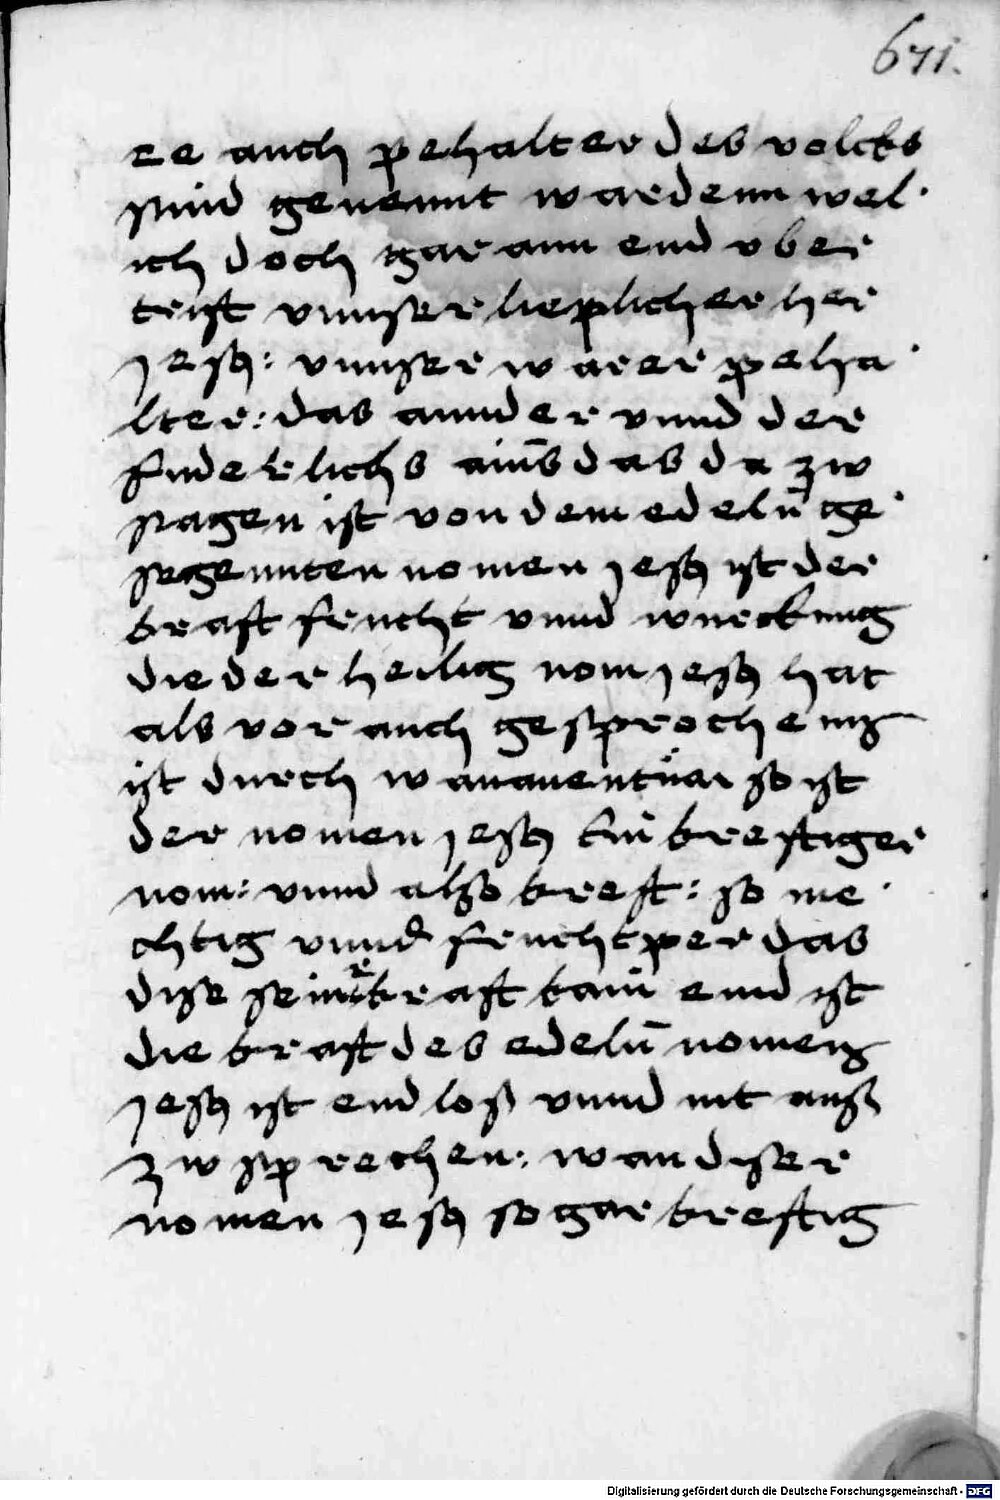 671.
re auch pehalter des volcks
sind genennt wardenn wel
ich doch gar ann end vber
trift vnnser lieplicher her
jesus: vnnser warer peha
lter: das annder vnnd der
finderlichs ains das da zw
sagen ist von dem edeln̄ ge
segennten nomen jesus ist der
kraft frucht vnnd wurckung
die der heilig nom jesus hat
als vor auch gesprochenn
ist durch wanauentuar so ist
der nomen jesus ein kreftiger
nom: vnnd also kreft: so me
chtig vnnd fruchtper das
dise seiner kraft kain end ist
die kraft des edeln̄ nomenn
jesus ist end loß vnnd nit auß
zw sprechen: wan diser
nomen jesus so gar kreftig
Digitalisierung gefördert durch die Deutsche Forschungsgemeinschaft - DFG